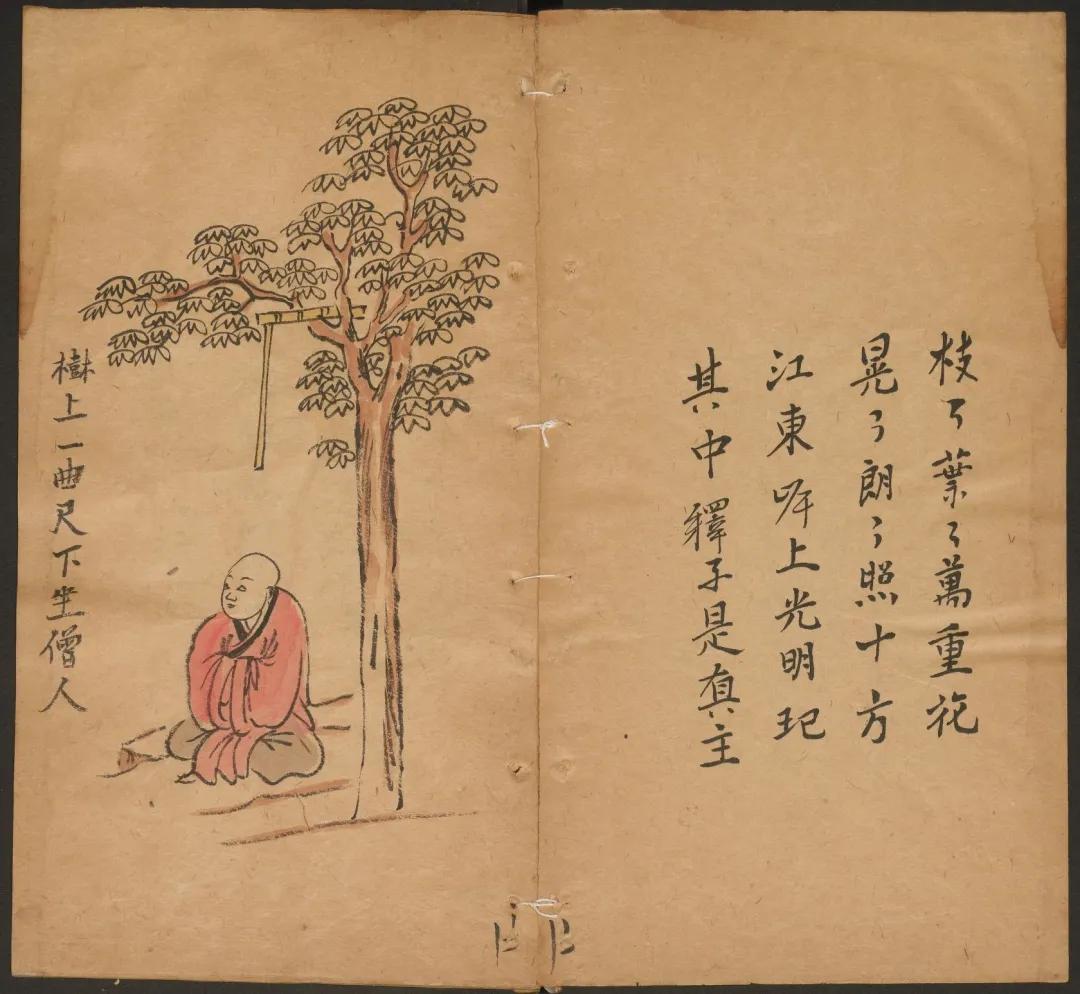 枝々葉々萬重花
晃々朗々照十方
江東岸上光明玘
其中釋子是真主
樹上一曲尺下坐僧人